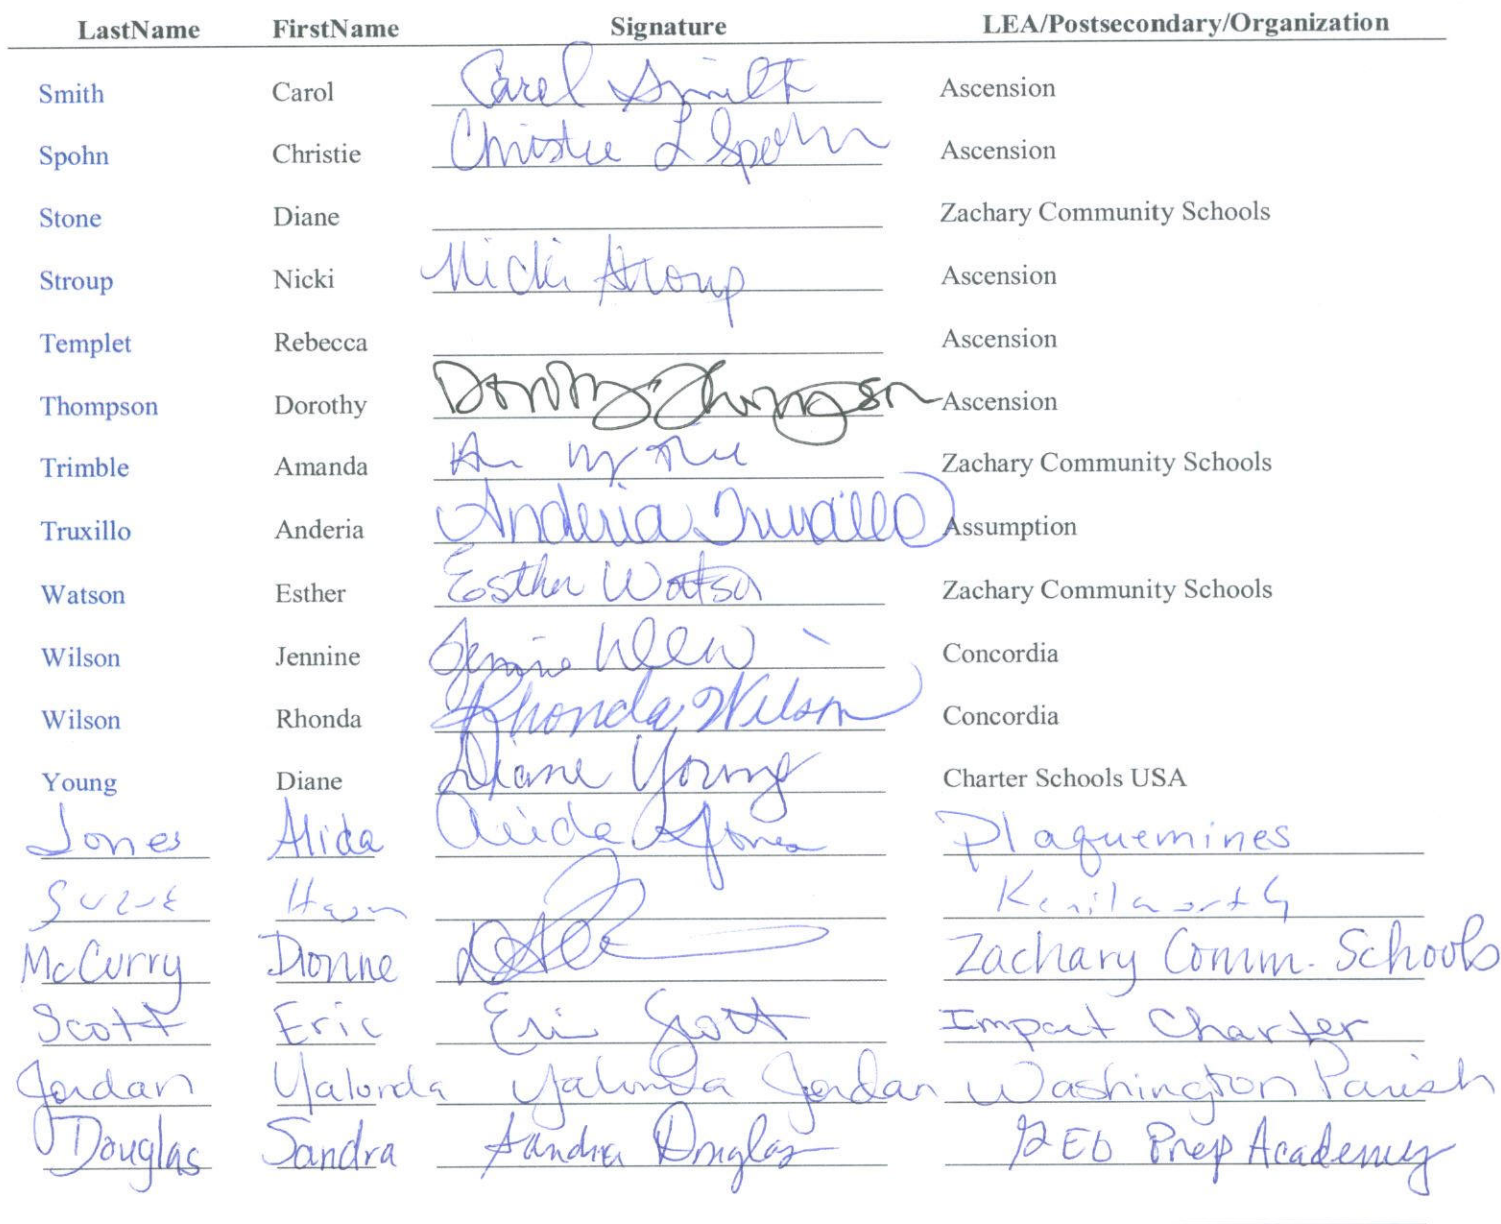 LastName FirstName Signature LEA/Postsecondary/Organization
Smith Carol Carol Smith Ascension
Spohn Christie Christie L Spohn Ascension
Stone Diane Zachary Community Schools
Stroup Nicki Nicki Stroup Ascension
Templet Rebecca Ascension
Thompson Dorothy Dorothy Thompson Ascension
Trimble Amanda Zachary Community Schools
Truxillo Anderia Anderia Truxillo Assumption
Watson Esther Esther Watson Zachary Community Schools
Wilson Jennine Jennine Wilson Concordia
Wilson Rhonda Rhonda Wilson Concordia
Young Diane Diane Young Charter Schools USA
Jones Alida Alida Jones Plaquemines
Kenilworth
McCurry Dionne Zachary Comm. Schools
Scott Eric Eric Scott Impact Charter
Jordan Yalonda Yalonda Jordan Washington Parish
Douglas Sandra Sandra Douglas GEO Prep Academy